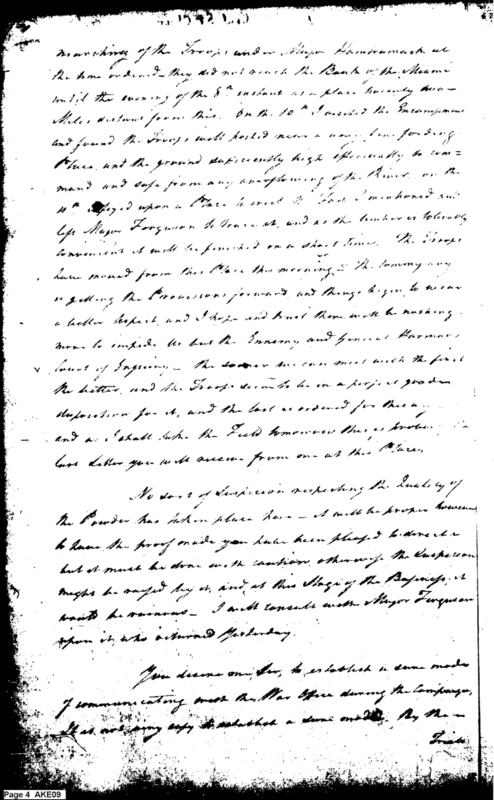 marching of the Troops under Major Hamtramack at
the time ordered – they did not reach the Bank of the Miami
until the evening of the 8th instant at a place twenty two
Miles distant from this. On the 10th I visited the Encampment
and found the Troops well posted near a very fine fording
Place, and the ground sufficiently high effectually to com=
mand and safe from any overflowing of the River. on the
11th upon a Place to erect the I mentioned and
left Major Ferguson to trace it, and as the timber is tolerably
convenient it will be finished in a short time. The Troops
have moved from this Place this morning –
is getting the Provisions forward, and things begin to wear
a better Aspect, and I hope and trust there will be nothing
more to impede us but the Ennemy and General Harmars
Court of Enquiry – the sooner we can meet with the first
the better, and the Troops seem to be in a proper
disposition for it, and the last is ordered for the
and as I shall take the Field tomorrow this is
last Letter you will receive from me at this Place.
No sort of Suspicion respecting the Quality of
the Powder has taken place here – it will be proper however
to have the proof made you have been pleased to direct
but it must be done with caution, otherwise the Suspicion
might be raised by it, and, at this Stage of the Business, it
would be ruinous – I will consult with Major Ferguson
upon it, who returned Yesterday.
You desire me, Sir, to establish a sure mode
of communicating with the War Office during the Campaign,
It is not very easy to establish a sure one. By the –
Page 4 AKE09